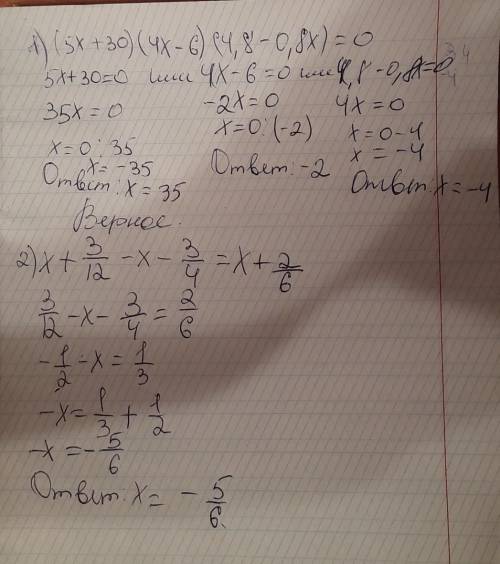 1) (5x+30)(4x-6)(4,8-0,8x)=0
5x+30=0 или 4x-6=0 или 4,8-0,8x=0
35x=0 -2x=0 4x=0
x=0:35 x=0:(-2) x=0-4
x=-35 x=-4
Ответ: x=35 Ответ: -2 Ответ: x=-4
2) x+3/12-x-3/4=x+2/6
3/12-x-3/4=2/6
-1/2-x=1/3
-x=1/3+1/2
-x=-5/6
Ответ: x=-5/6